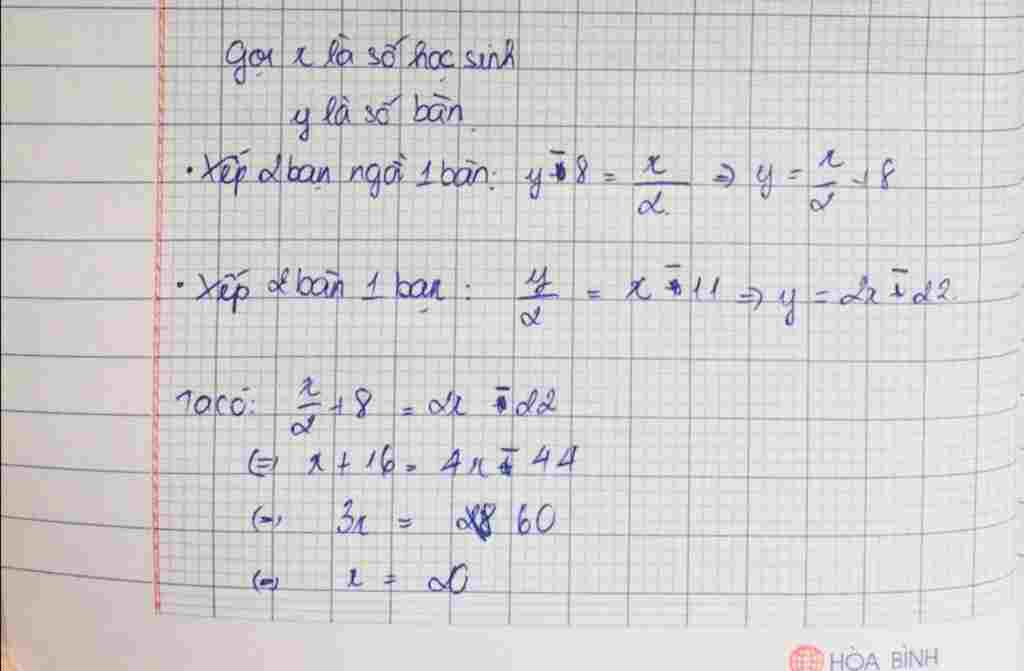 Gọi x là số học sinh
y là số bàn
• Xếp 2 bạn ngồi 1 bàn: y - 8 = x/2 => y = x/2 + 8
• Xếp 2 bàn 1 bạn: y/2 = x - 11 => y = 2x - 22
Ta có: x/2 + 8 = 2x - 22
(=) x + 16 = 4x - 44
(=) 3x = 60
(=) x = 20
HÒA BÌNH